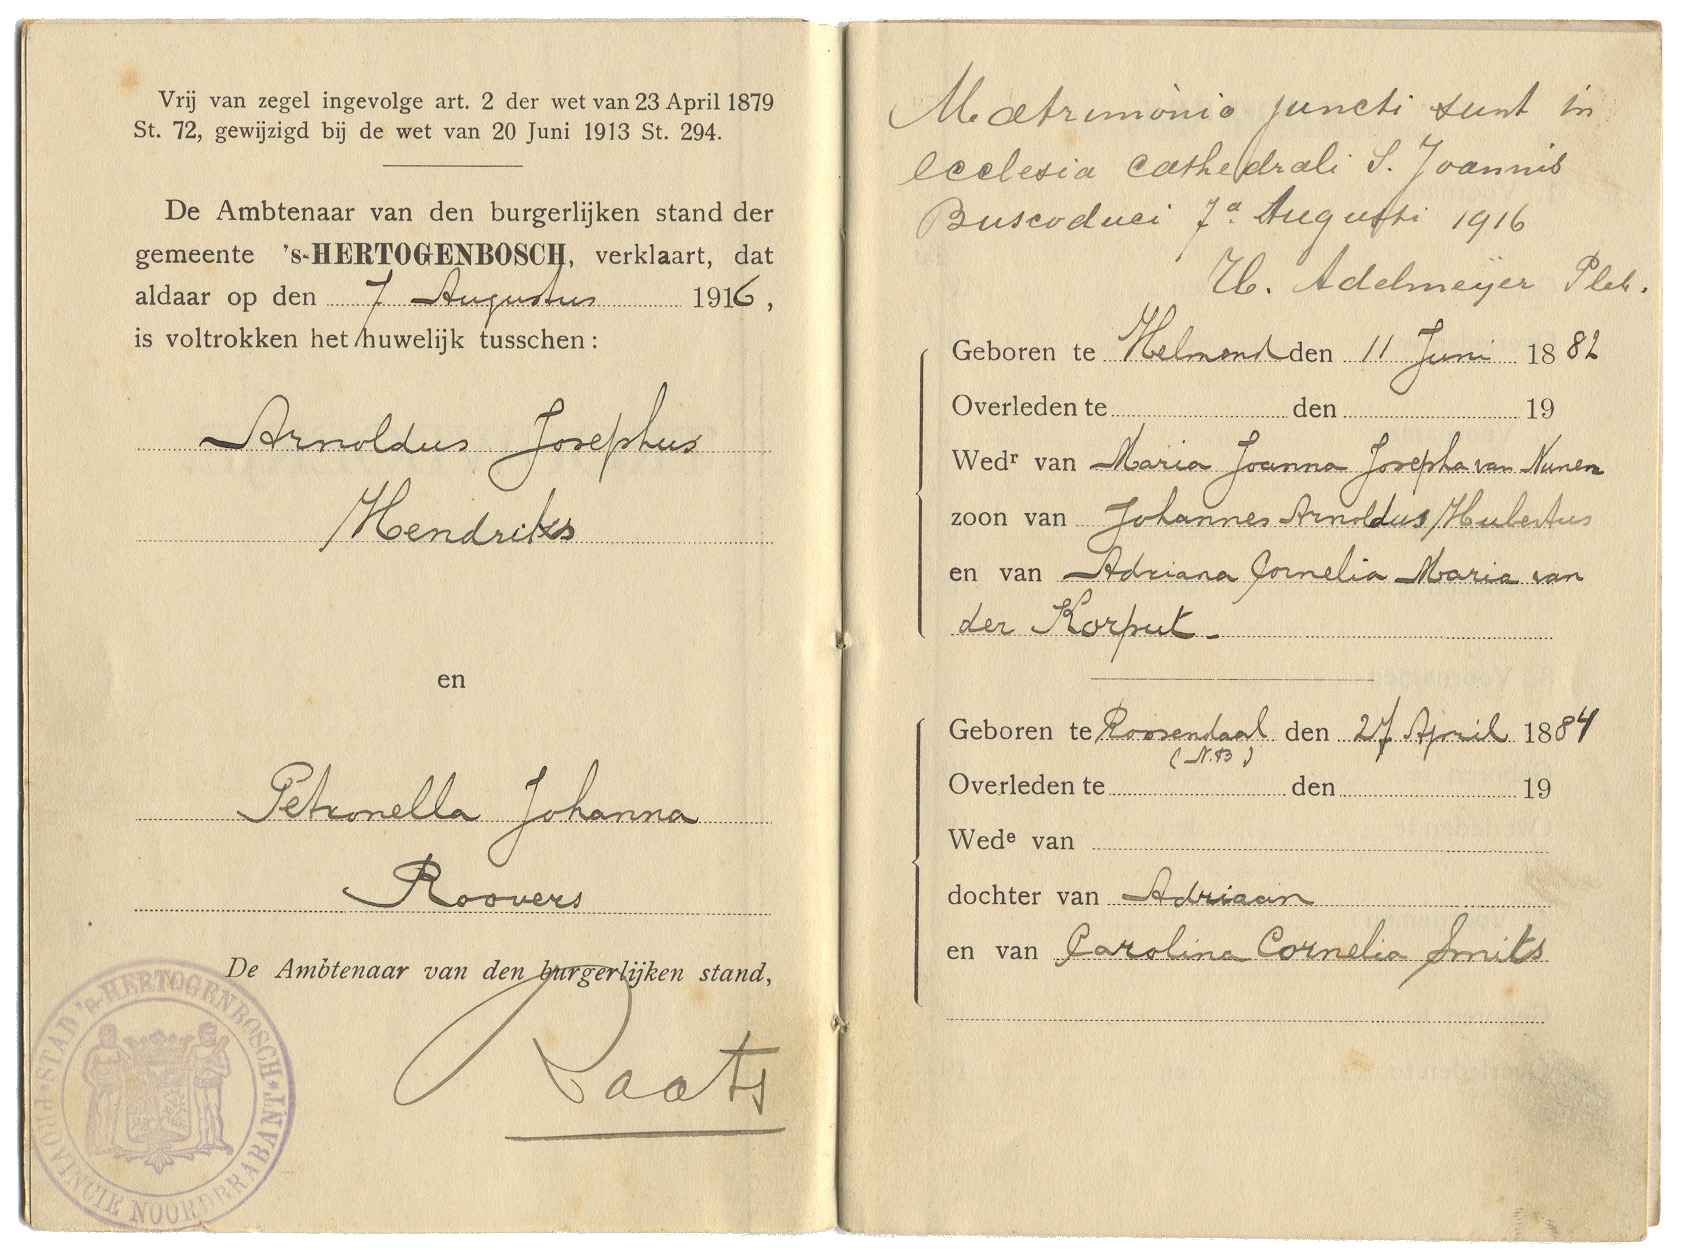 Vrij van zegel ingevolge art. 2 der wet van 23 April 1879
St. 72, gewijzigd bij de wet van 20 Juni 1913 St. 294.
De Ambtenaar van den burgerlijken stand der
gemeente 's-HERTOGENBOSCH, verklaart, dat
aldaar op den 7 Augustus 1916,
is voltrokken het huwelijk tusschen:
Arnoldus Josephus
Hendriks
en
Petronella Johanna
Roovers
De Ambtenaar van den burgerlijken stand,
Raats
STAD 's-HERTOGENBOSCH
PROVINCIE NOORDBRABANT
Matrimonio juncti sunt in
ecclesia cathedrali S. Joannis
Buscoduci 7a Augusti 1916
Adelmeijer Pleb.
Geboren te Helmond den 11 Juni 1882
Overleden te den 19
Wedr van Maria Joanna Josepha van Nunen
zoon van Johannes Arnoldus Hubertus
en van Adriana Cornelia Maria van
der Korput
Geboren te Roosendaal den 27 April 1884
(N.B)
Overleden te den 19
Wede van
dochter van Adriaan
en van Carolina Cornelia Smits